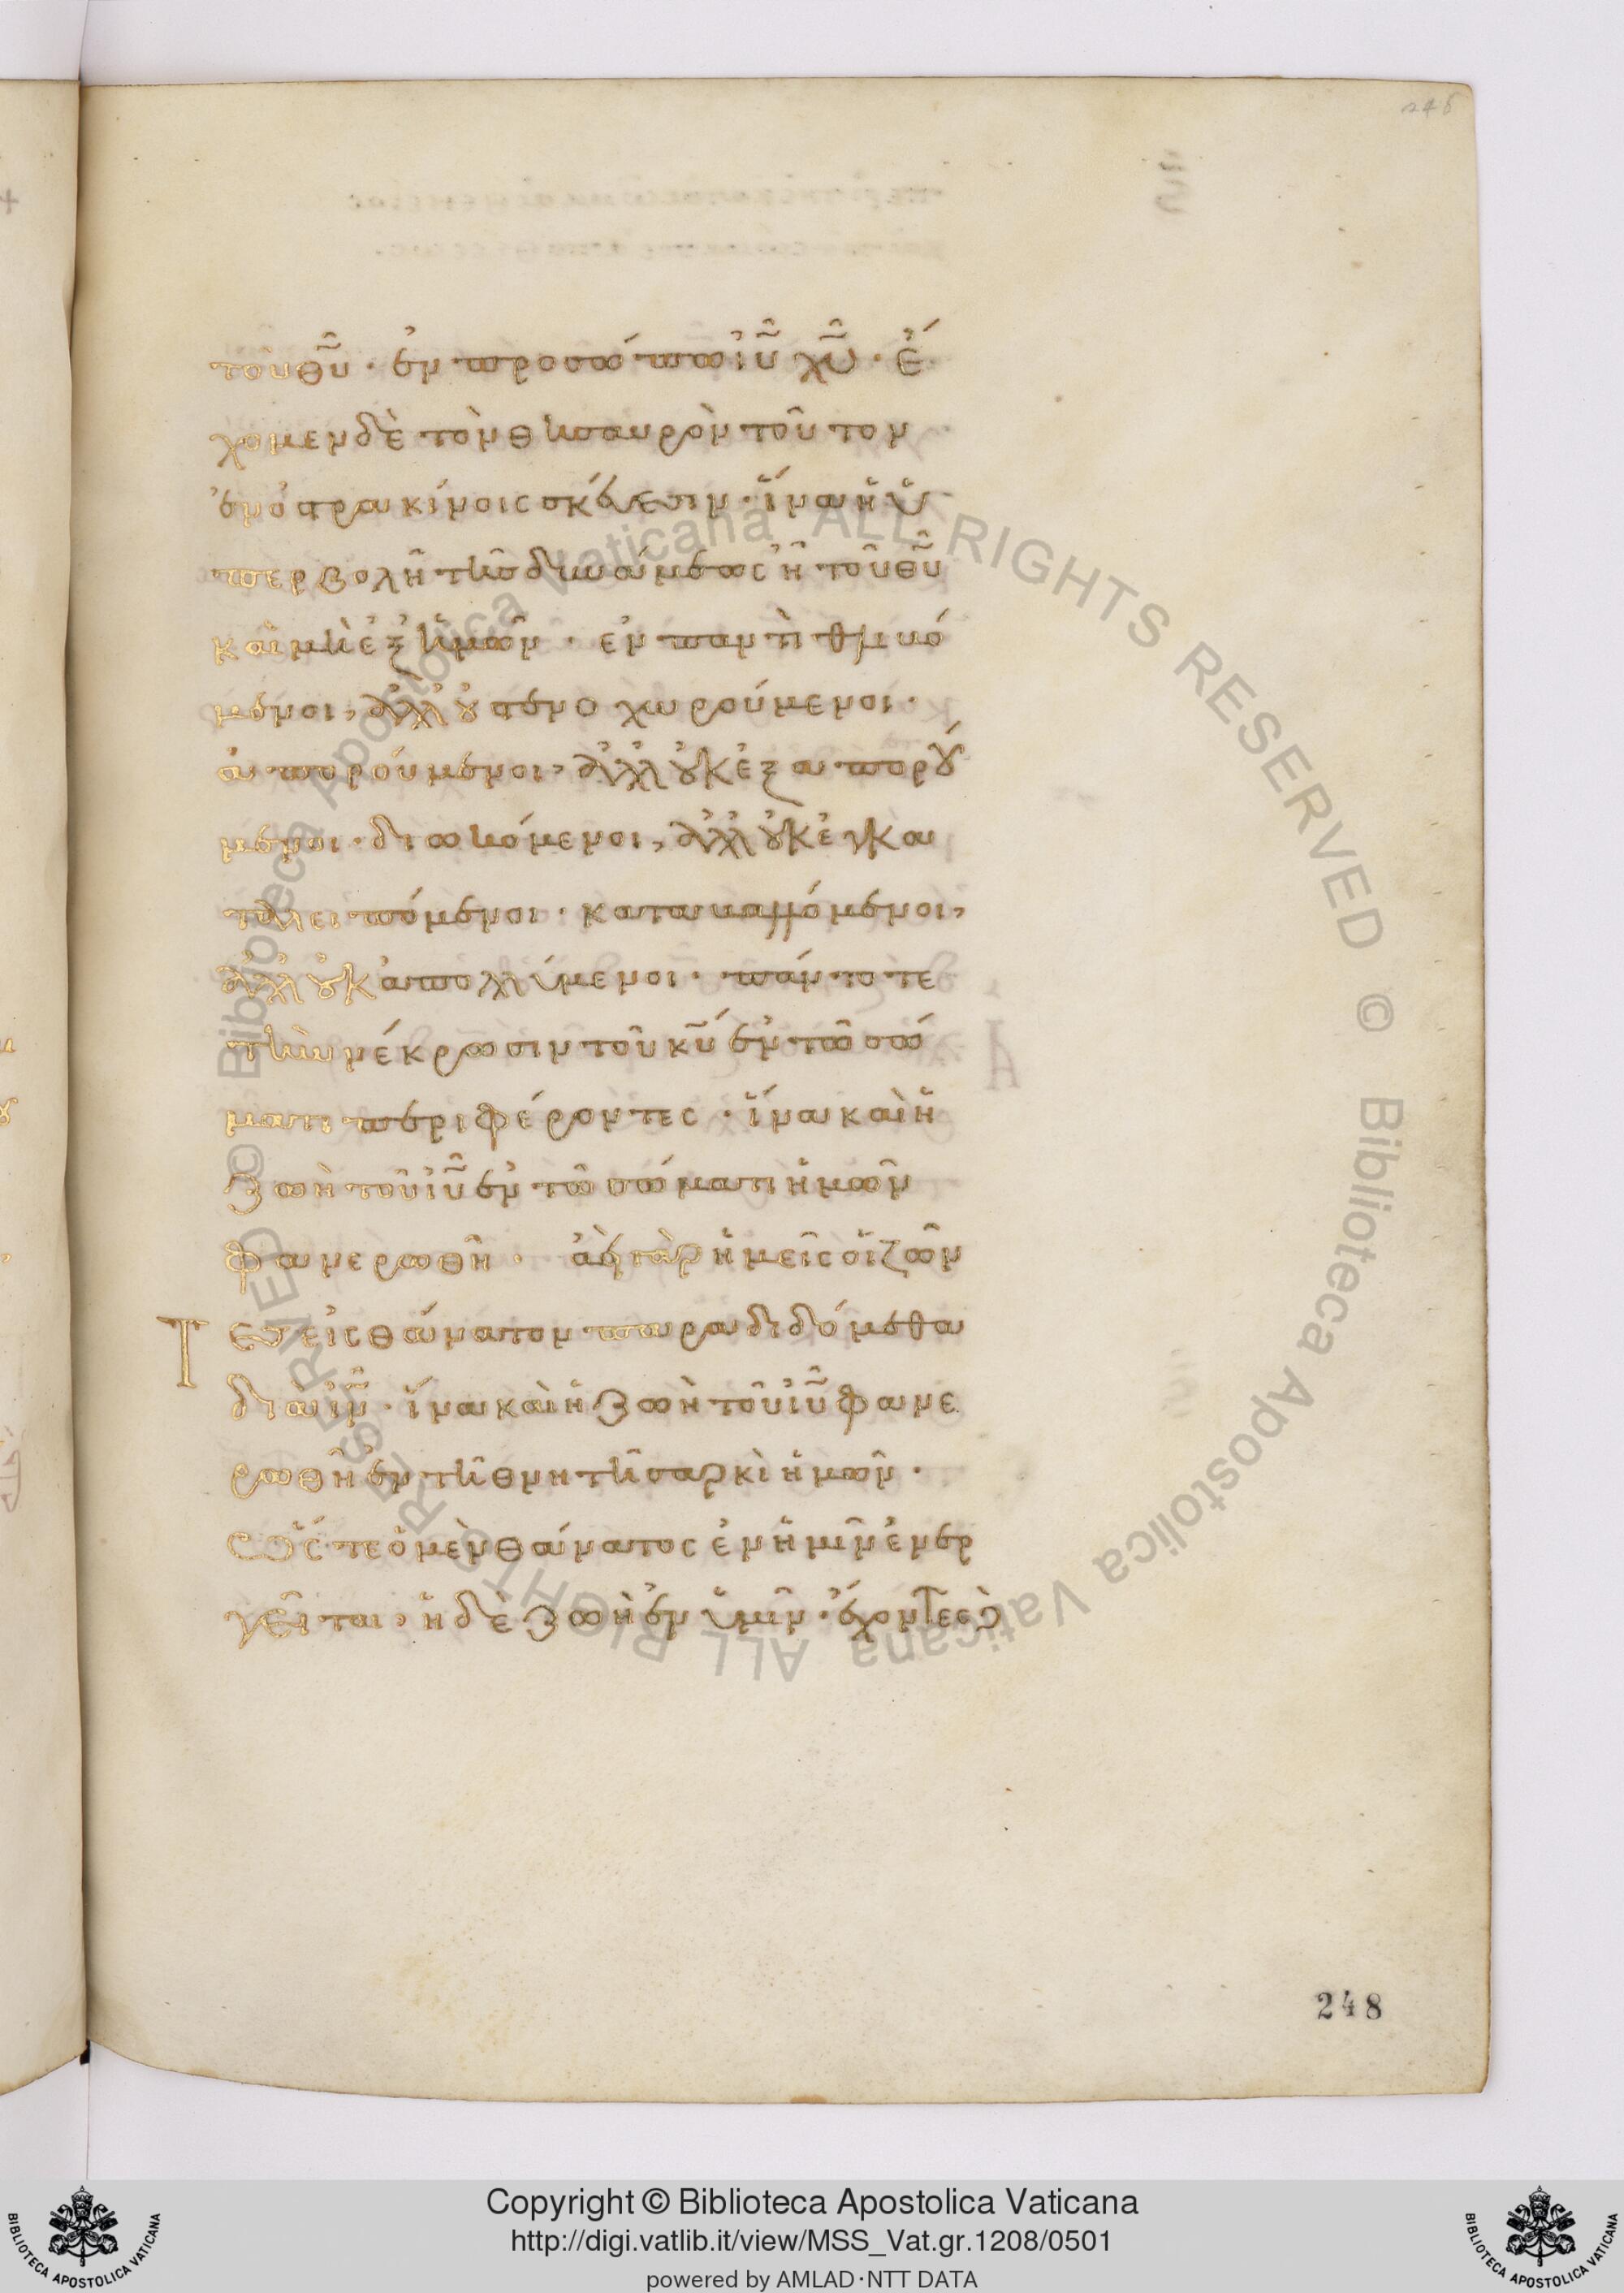 248
τοῦ θ̅υ̅ · ἐν προσώπω ἰ̅υ̅ χ̅υ̅ · ἔ
χομεν δὲ τὸν θησαυρὸν τοῦτον
ἐν ὀστρακίνοις σκεύεσιν · ἵνα ἡ ὑ
περβολὴ τῆς δυνάμεως ἦ τοῦ θ̅υ̅
καὶ μὴ ἐξ ἡμῶν · ἐν παντὶ θλιβό
μενοι, ἀλλ' οὐ στενοχωρούμενοι ·
ἀπορούμενοι, ἀλλ' οὐκ ἐξαπορού
μενοι · διωκόμενοι, ἀλλ' οὐκ ἐγκα
ταλειπόμενοι · καταβαλλόμενοι,
ἀλλ' οὐκ ἀπολλύμενοι · πάντοτε
τὴν νέκρωσιν τοῦ κ̅υ̅ ἐν τῶ σώ
ματι περιφέροντες · ἵνα καὶ ἡ
ζωὴ τοῦ ἰ̅υ̅ ἐν τῶ σώματι ἡμῶν
φανερωθῆ · ἀεὶ γὰρ ἡμεῖς οἱ ζῶν
Τες εἰς θάνατον παραδιδόμεθα
διὰ ἰ̅ν̅ · ἵνα καὶ ἡ ζωὴ τοῦ ἰ̅υ̅ φανε
ρωθῆ ἐν τῆ θνητῆ σαρκὶ ἡμῶν ·
ὥστε ὁ μὲν θάνατος ἐν ἡμῖν ἐνερ
γεῖται, ἡ δὲ ζωὴ ἐν ὑμῖν · ἔχοντες δὲ
248
© Biblioteca Apostolica Vaticana ALL RIGHTS RESERVED © Biblioteca Apostolica Vaticana ALL RIGHTS RESERVED
Copyright © Biblioteca Apostolica Vaticana
http://digi.vatlib.it/view/MSS_Vat.gr.1208/0501
powered by AMLAD·NTT DATA
BIBLIOTECA APOSTOLICA VATICANA
BIBLIOTECA APOSTOLICA VATICANA